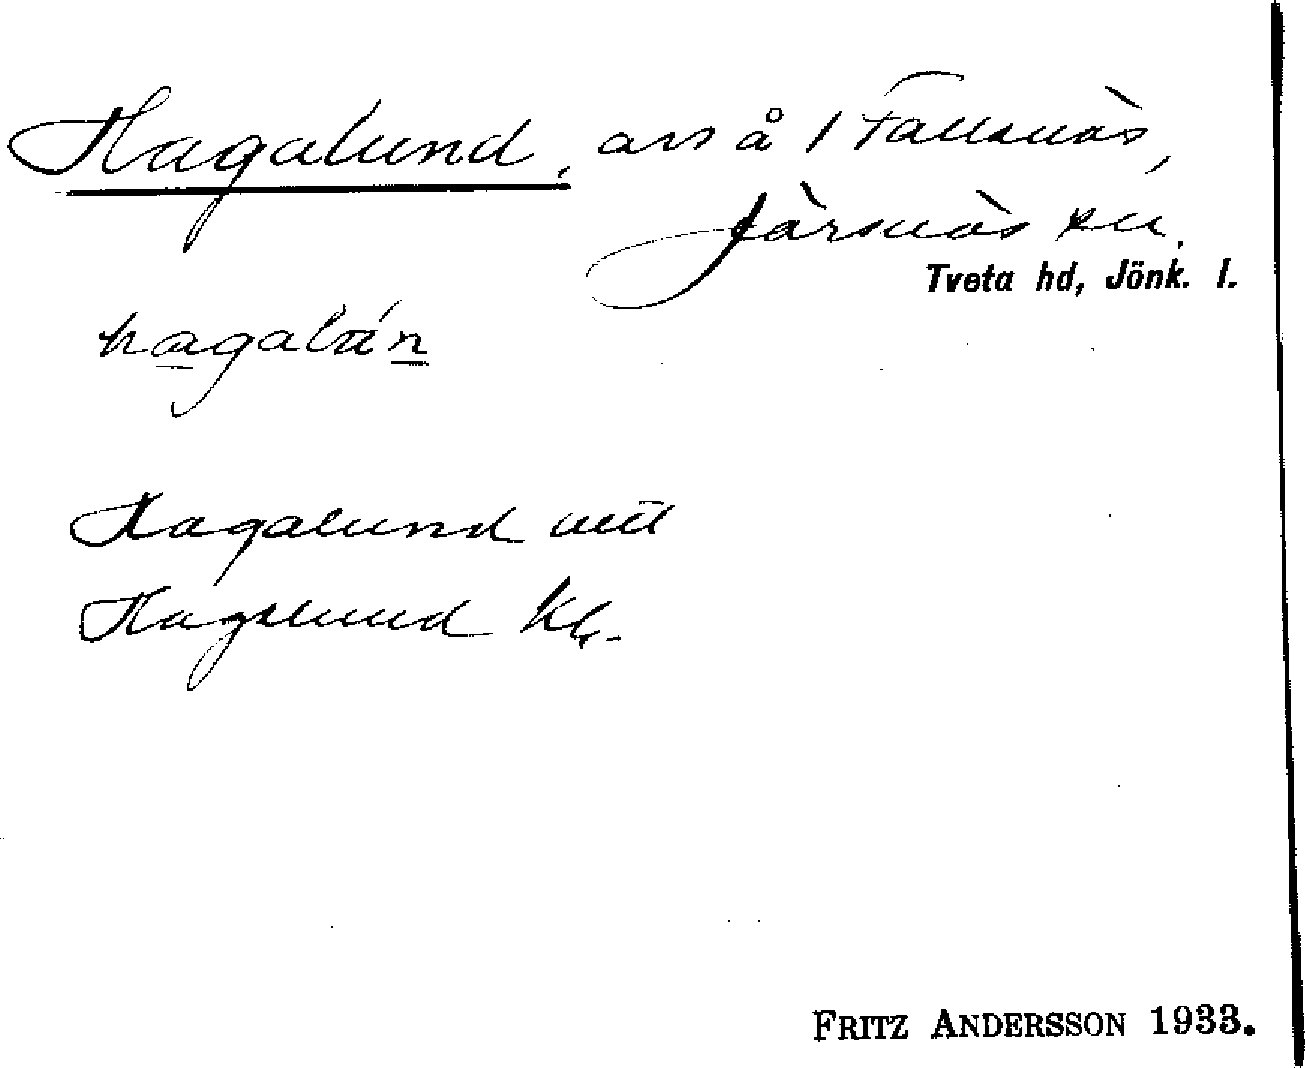 Hagalund, avs å 1 Fallsnäs,
Järsnäs sn,
Tveta hd, Jönk. l.
hagalún
Hagalund
Hagalund Kb.
FRITZ ANDERSSON 1933.